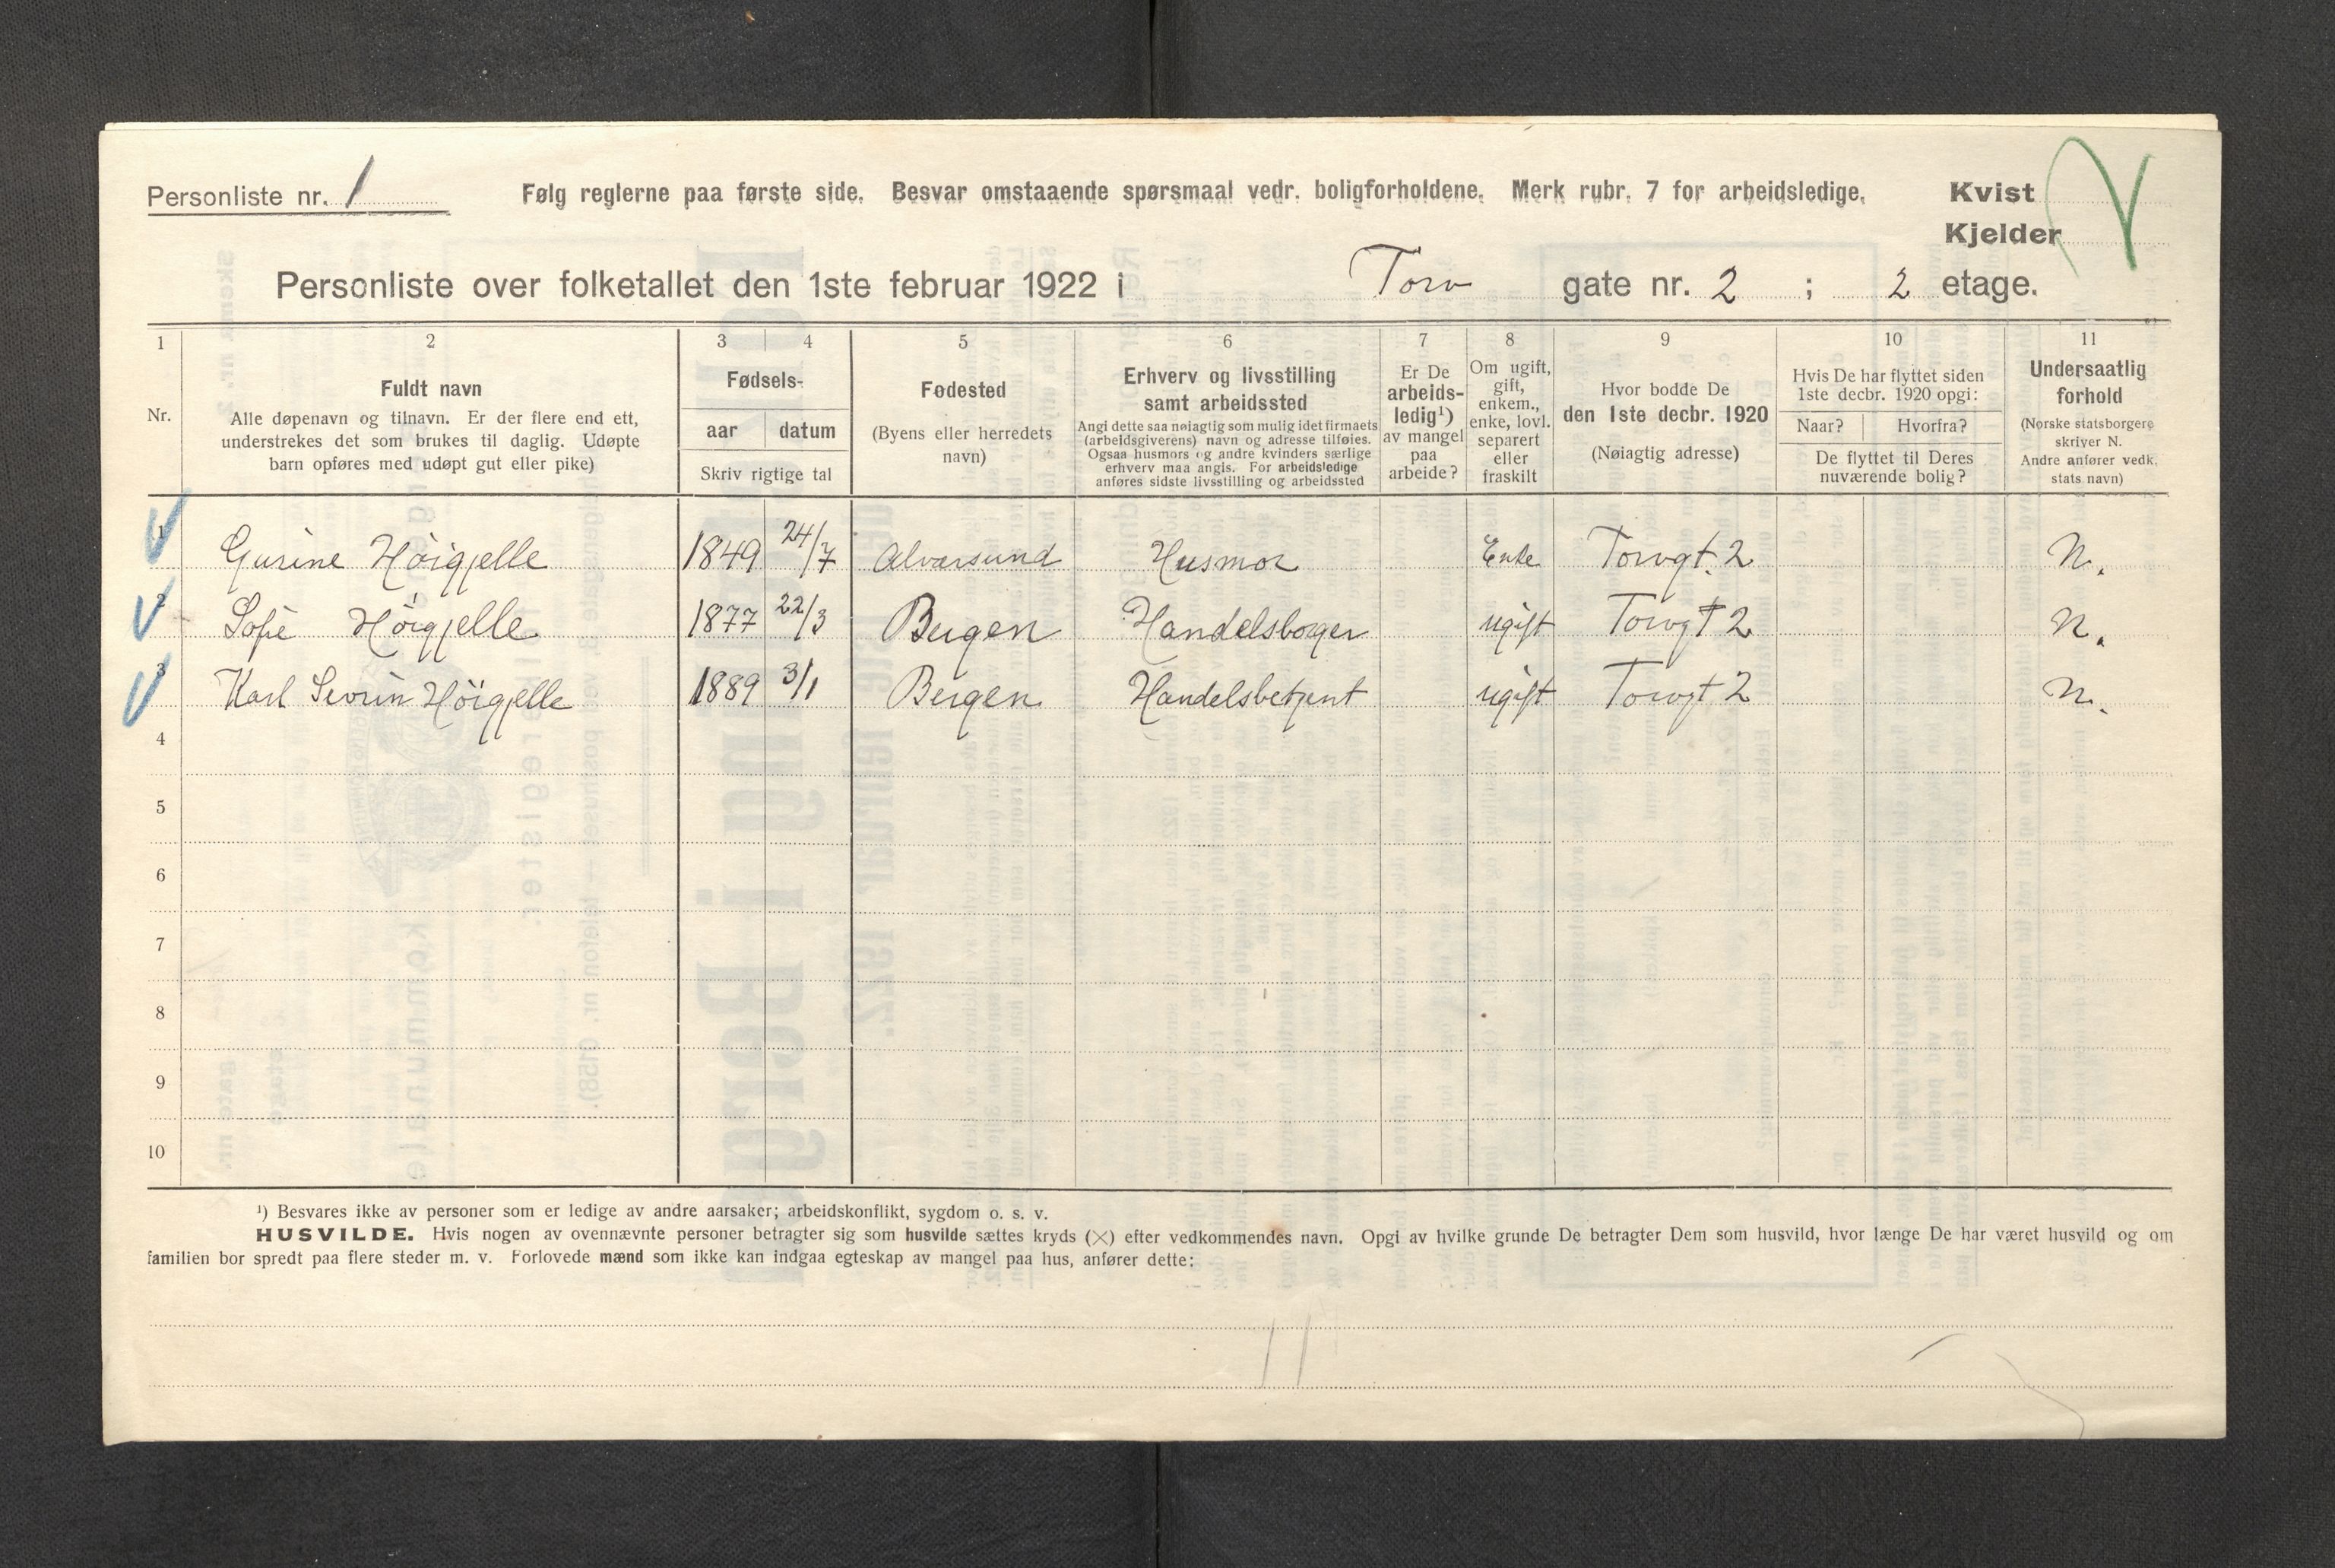 Personliste nr. 1 Følg reglerne paa første side. Besvar omstaaende spørsmaal vedr. boligforholdene. Merk rubr. 7 for arbeidsledige. Kvist
Kjelder
Personliste over folketallet den 1ste februar 1922 i Torv gate nr. 2 ; 2 etage.
1 2 3 4 5 6 7 8 9 10 11
Nr.
Fuldt navn
Alle døpenavn og tilnavn. Er der flere end ett,
understrekes det som brukes til daglig. Udøpte
barn opføres med udøpt gut eller pike)
Fødsels-
aar datum
Skriv rigtige tal
Fødested
(Byens eller herredets
navn)
Erhverv og livsstilling
samt arbeidssted
Angi dette saa nøiagtig som mulig idet firmaets
(arbeidsgiverens) navn og adresse tilføies.
Ogsaa husmors og andre kvinders særlige
erhverv maa angis. For arbeidsledige
anføres sidste livsstilling og arbeidssted
Er De
arbeids-
ledig¹)
av mangel
paa
arbeide?
Om ugift,
gift,
enkem.,
enke, lovl.
separert
eller
fraskilt
Hvor bodde De
den 1ste decbr. 1920
(Nøiagtig adresse)
Hvis De har flyttet siden
1ste decbr. 1920 opgi:
Naar? Hvorfra?
De flyttet til Deres
nuværende bolig?
Undersaatlig
forhold
(Norske statsborgere
skriver N.
Andre anfører vedk.
stats navn)
1 Gurine Höigjelle 1849 24/7 Alversund Husmor Enke Torvgt. 2 N.
2 Sofie Höigjelle 1877 22/3 Bergen Handelsborger ugift Torvgt 2 N.
3 Karl Sevrin Höigjelle 1889 3/1 Bergen Handelsbetjent ugift Torvgt 2 N.
4
5
6
7
8
9
10
¹) Besvares ikke av personer som er ledige av andre aarsaker; arbeidskonflikt, sygdom o. s. v.
HUSVILDE. Hvis nogen av ovennævnte personer betragter sig som husvilde sættes kryds (×) efter vedkommendes navn. Opgi av hvilke grunde De betragter Dem som husvild, hvor længe De har været husvild og om
familien bor spredt paa flere steder m. v. Forlovede mænd som ikke kan indgaa egteskap av mangel paa hus, anfører dette: